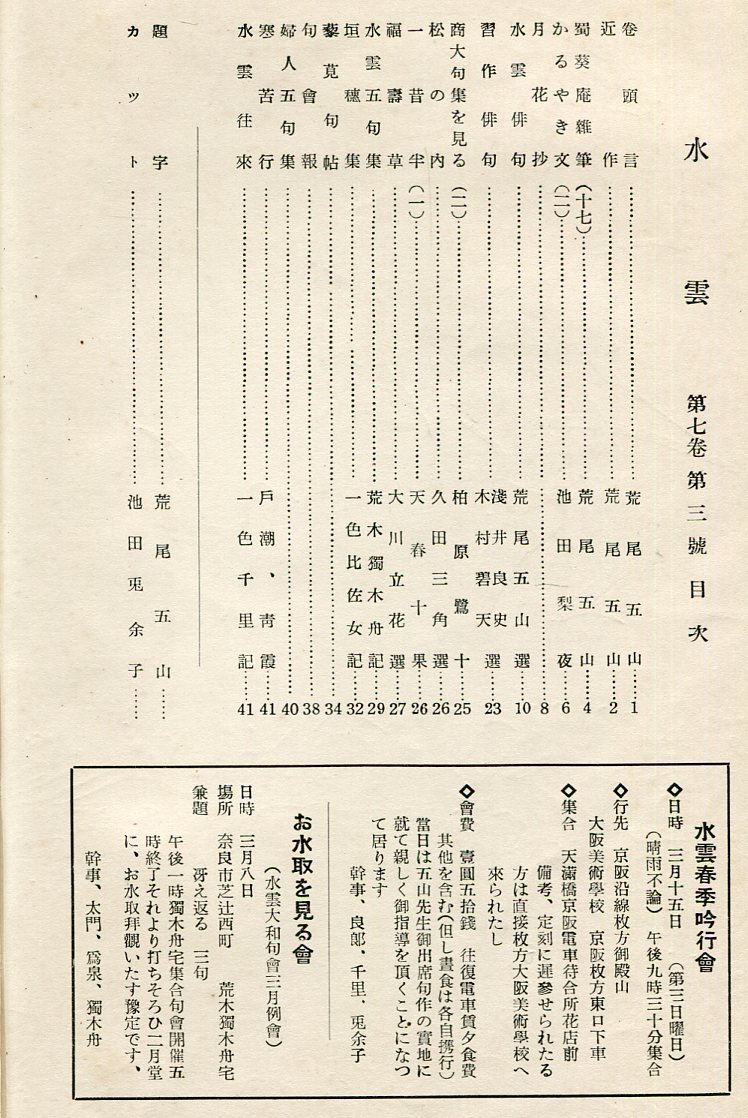 水雲 第七卷第三號目次
卷頭言……荒尾五山……1
近作……荒尾五山……2
蜀葵庵雜筆(十七)……荒尾五山……4
かるやき文(二)……池田梨夜……6
月花抄……8
水雲俳句……荒尾五山選……10
習作俳句……淺井良史 木村碧天選……23
商大句集を見る(二)……柏原鷺十……25
松の內……久田三角選……26
一昔半(一)……天春十果……26
福壽草……大川立花選……27
水雲五句集……荒木獨木舟記……29
垣穗集……一色比佐女記……32
藜莧句帖……34
句會報……38
婦人五句集……40
寒苦行……戶潮、靑霞……41
水雲往來……一色千里記……41
題字……荒尾五山……
カット……池田兎余子……
水雲春季吟行會
◇日時 三月十五日 (第三日曜日)
(晴雨不論) 午後九時三十分集合
◇行先 京阪沿線枚方御殿山
大阪美術學校 京阪枚方東口下車
◇集合 天滿橋京阪電車待合所花店前
備考、定刻に遲參せられたる
方は直接枚方大阪美術學校へ
來られたし
◇會費 壹圓五拾錢 往復電車賃夕食費
其他を含む(但し晝食は各自携行)
當日は五山先生御出席句作の實地に
就て親しく御指導を頂くことになつ
て居ります
幹事、良郞、千里、兎余子
お水取を見る會
(水雲大和句會三月例會)
日時 三月八日
場所 奈良市芝辻西町 荒木獨木舟宅
兼題 冴え返る 三句
午後一時獨木舟宅集合句會開催五
時終了それより打ちそろひ二月堂
に、お水取拜觀いたす豫定です、
幹事、太門、爲泉、獨木舟